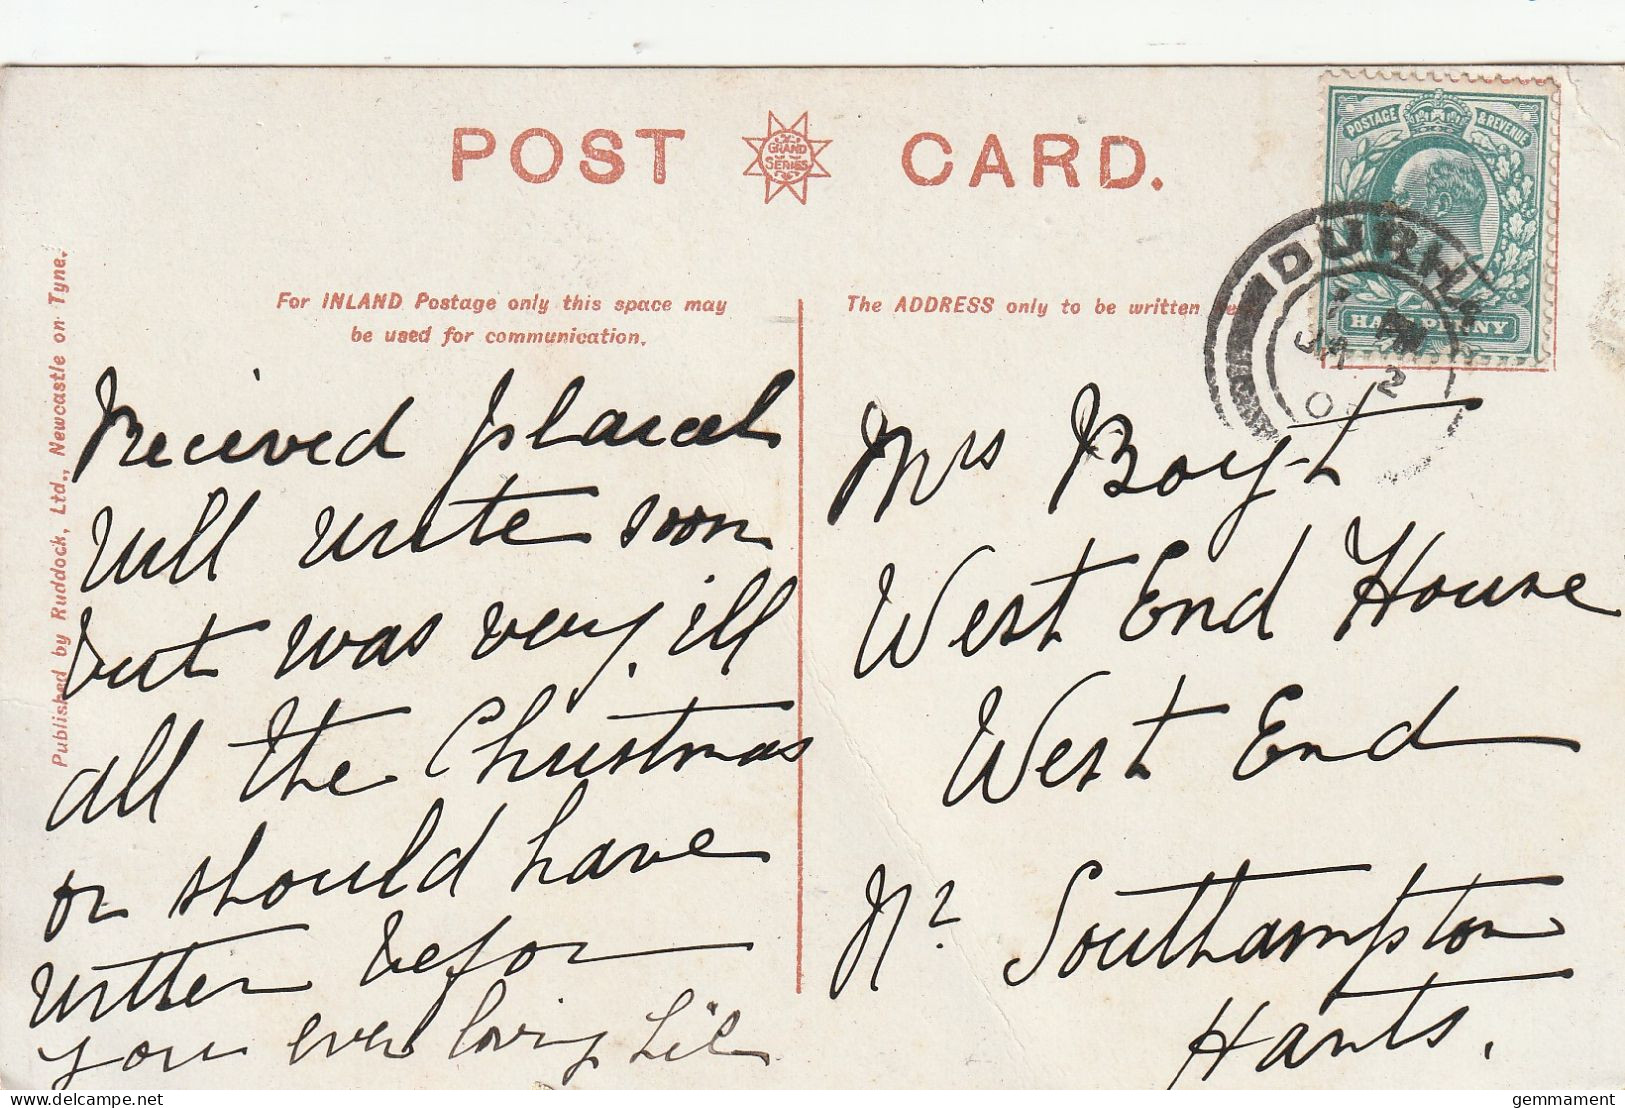 POST CARD.
GRAND
SERIES
POSTAGE & REVENUE
HALFPENNY
DURHA
JA 2
0
Published by Ruddock, Ltd., Newcastle on Tyne.
For INLAND Postage only this space may
be used for communication.
The ADDRESS only to be written
Recieved
will write soon
but was very ill
all the Christmas
or should have
written befor
your ever loving Lil
Mrs Boyt
West End House
West End
Nr Southampton
Hants.
gemmament